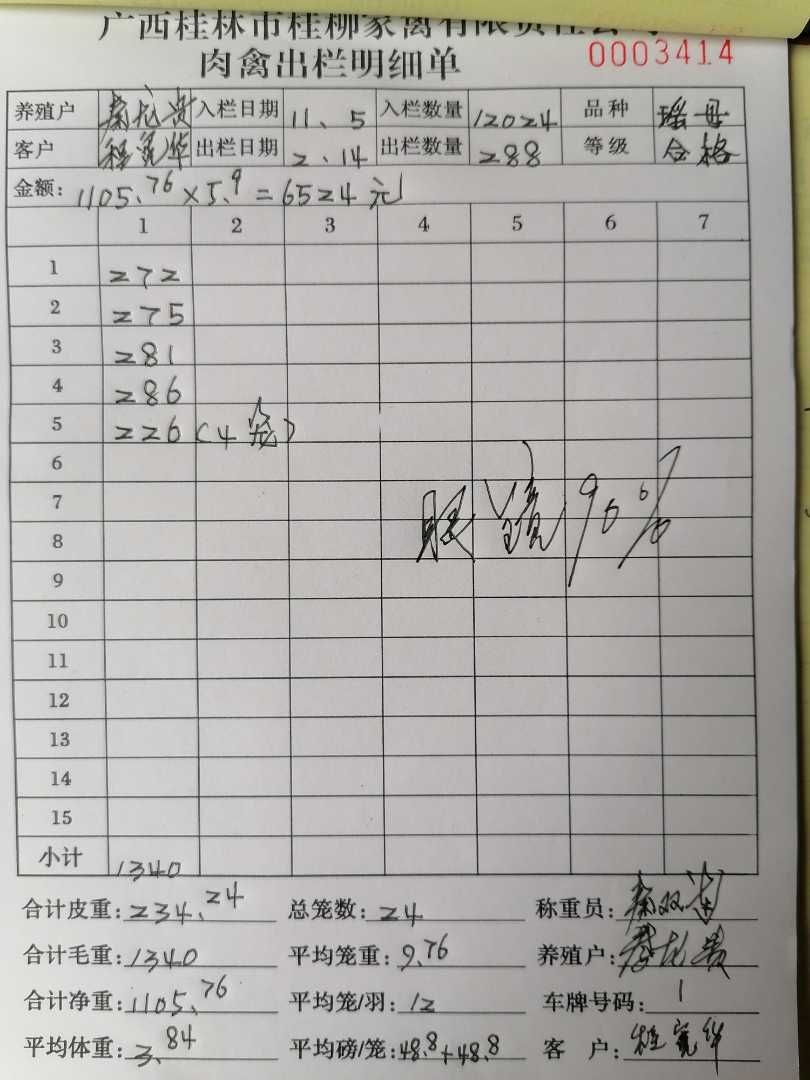 广西桂林市桂柳家禽有限责任公司
肉禽出栏明细单 0003414
养殖户 秦龙贵 入栏日期 11、5 入栏数量 12024 品种 瑶母
客户 程宽华 出栏日期 2、14 出栏数量 288 等级 合格
金额: 1105.76×5.9=6524元
1 2 3 4 5 6 7
1 272
2 275
3 281
4 286
5 226(4笼)
6
7
8 眼镜90%
9
10
11
12
13
14
15
小计 1340
合计皮重: 234.24 总笼数: 24 称重员:
合计毛重: 1340 平均笼重: 9.76 养殖户: 秦龙贵
合计净重: 1105.76 平均笼/羽: 12 车牌号码: 1
平均体重: 3.84 平均磅/笼: 48.8+48.8 客 户: 程宽华